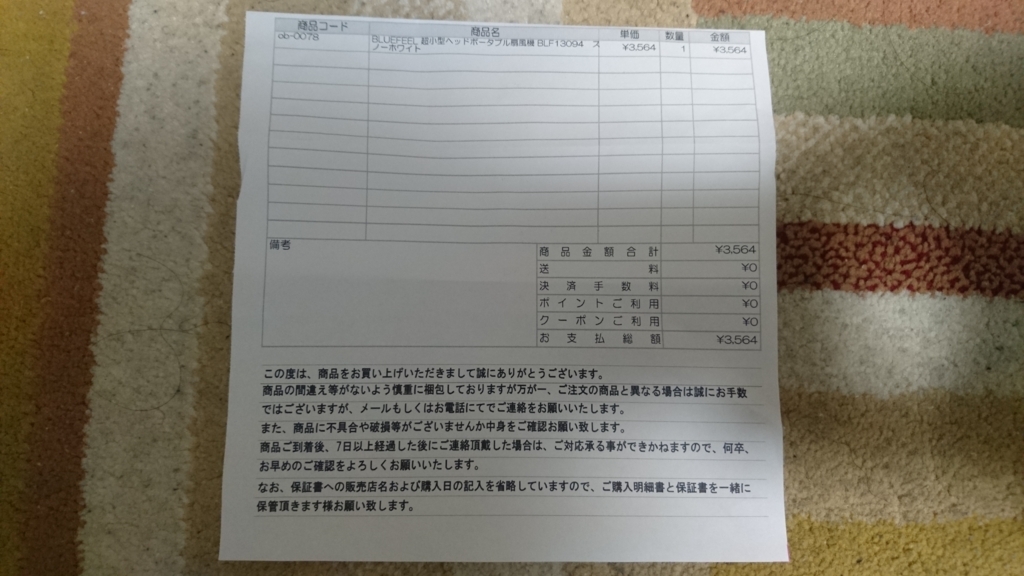 商品コード 商品名 単価 数量 金額
ob-0078 BLUEFEEL 超小型ヘッドポータブル扇風機 BLF13094 ス ¥3,564 1 ¥3,564
ノーホワイト
備考
商品金額合計 ¥3,564
送料 ¥0
決済手数料 ¥0
ポイントご利用 ¥0
クーポンご利用 ¥0
お支払総額 ¥3,564
この度は、商品をお買い上げいただきまして誠にありがとうございます。
商品の間違え等がないよう慎重に梱包しておりますが万が一、ご注文の商品と異なる場合は誠にお手数
ではございますが、メールもしくはお電話にてご連絡をお願いいたします。
また、商品に不具合や破損等がございませんか中身をご確認お願い致します。
商品ご到着後、7日以上経過した後にご連絡頂戴した場合は、ご対応承る事ができかねますので、何卒、
お早めのご確認をよろしくお願いいたします。
なお、保証書への販売店名および購入日の記入を省略していますので、ご購入明細書と保証書を一緒に
保管頂きます様お願い致します。